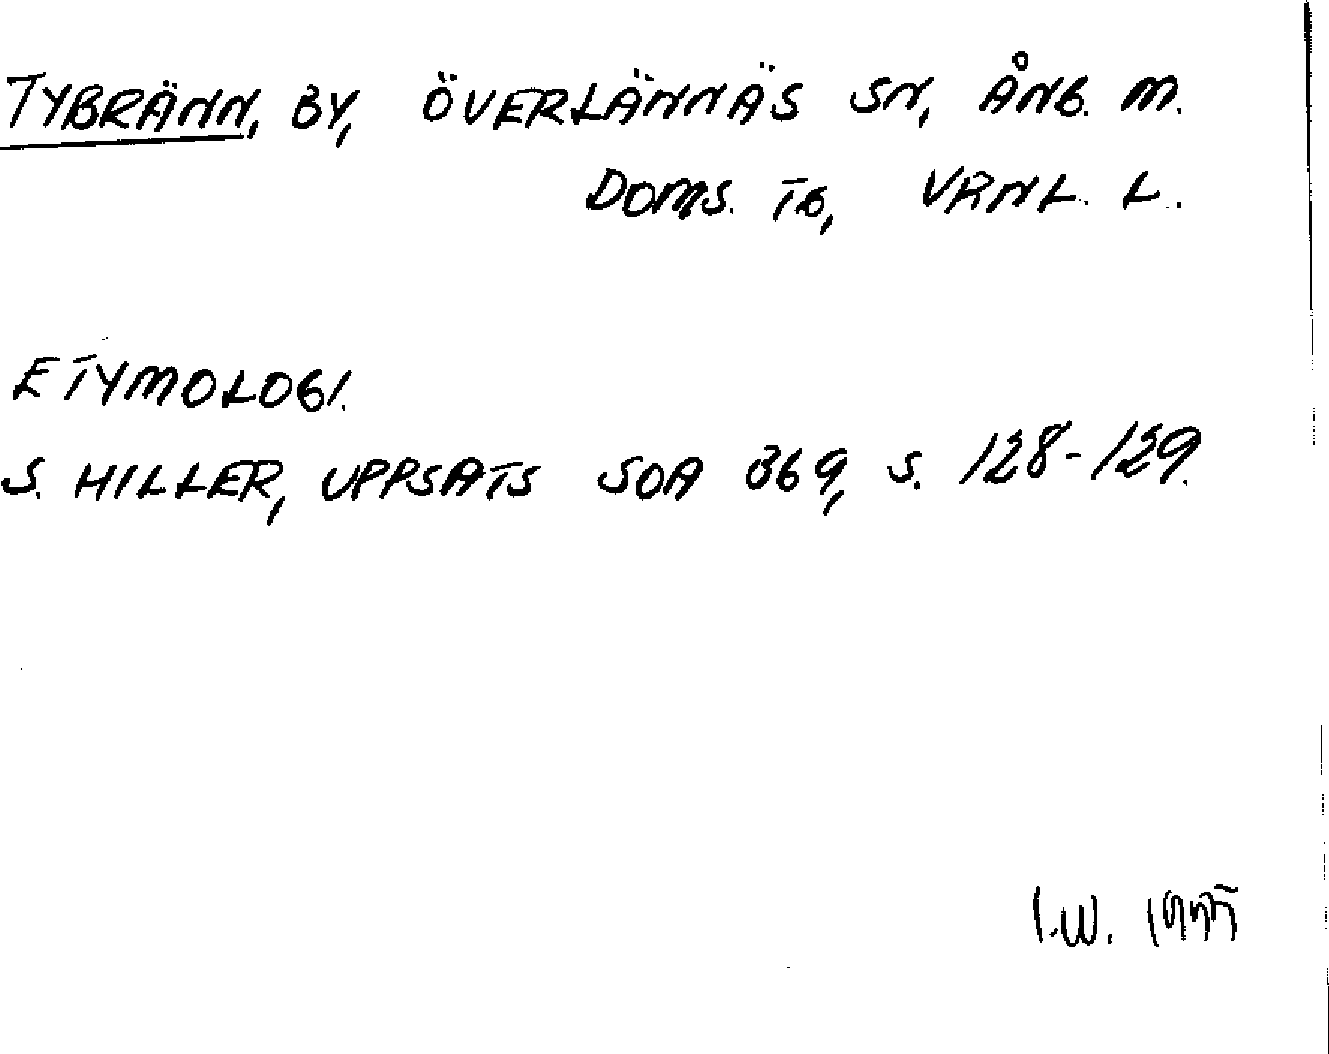 TYBRÄNN, BY, ÖVERLÄNNÄS SN, ÅNG. M.
DOMS. TG, VRNL. L.
ETYMOLOGI.
S. HILLER, UPPSATS SOA 369, S. 128-129.
I.W.